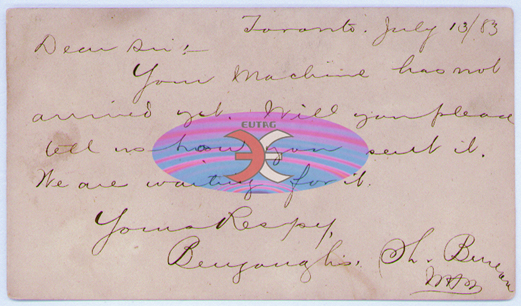 Toronto. July 13/83
Dear Sir:
Your Machine has not
arrived yet. Will you please
tell us how you sent it.
We are waiting for it.
Yours Respy,
Bengough's. Sh. Bureau
EUTRG